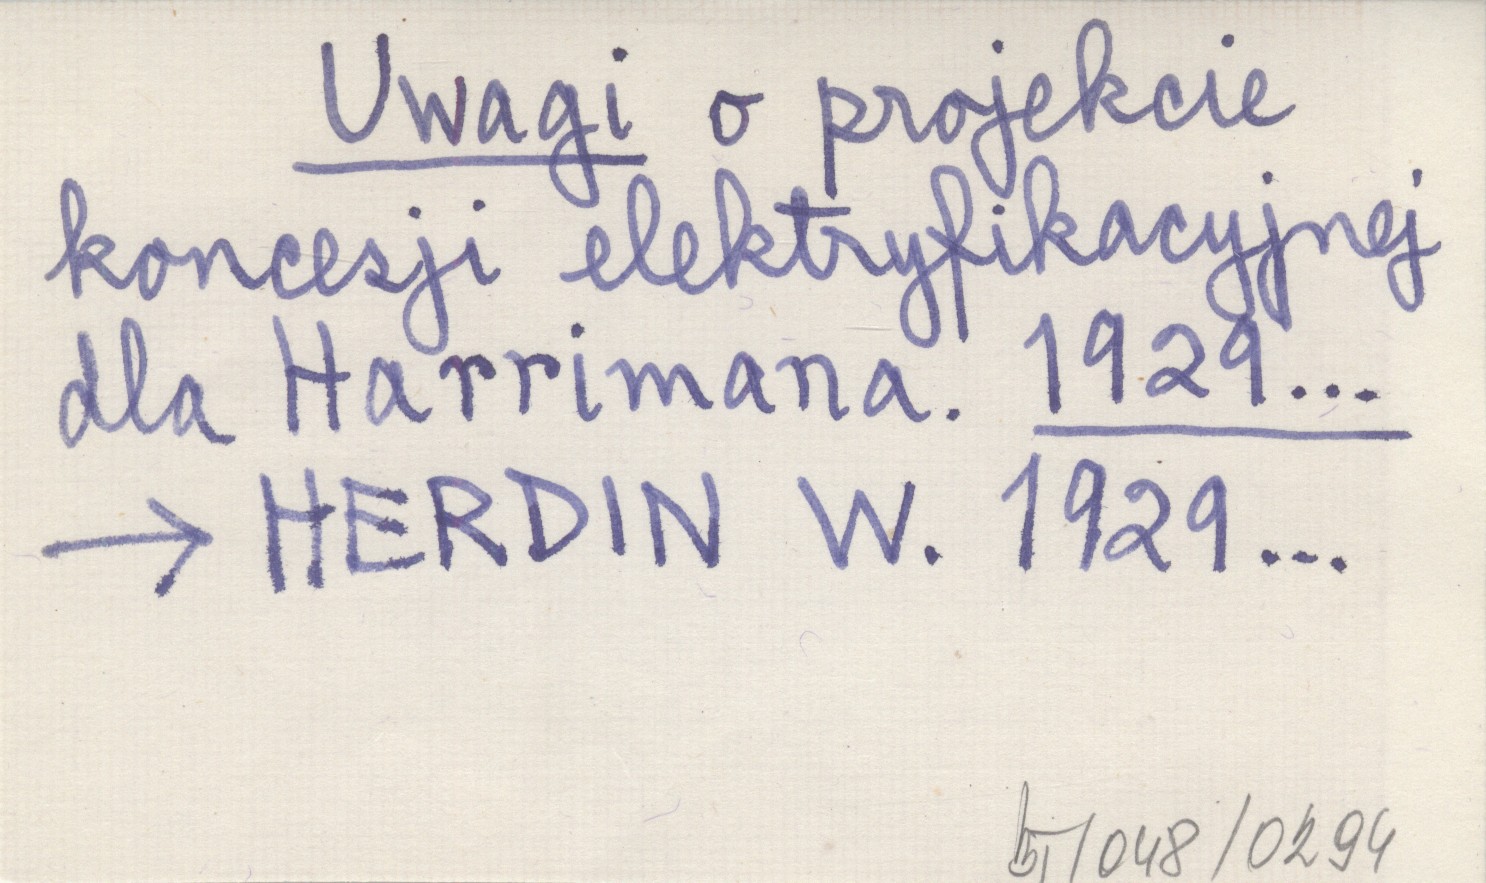 Uwagi o projekcie
koncesji elektryfikacyjnej
dla Harrimana. 1929...
→ HERDIN W. 1929...
/048/0294